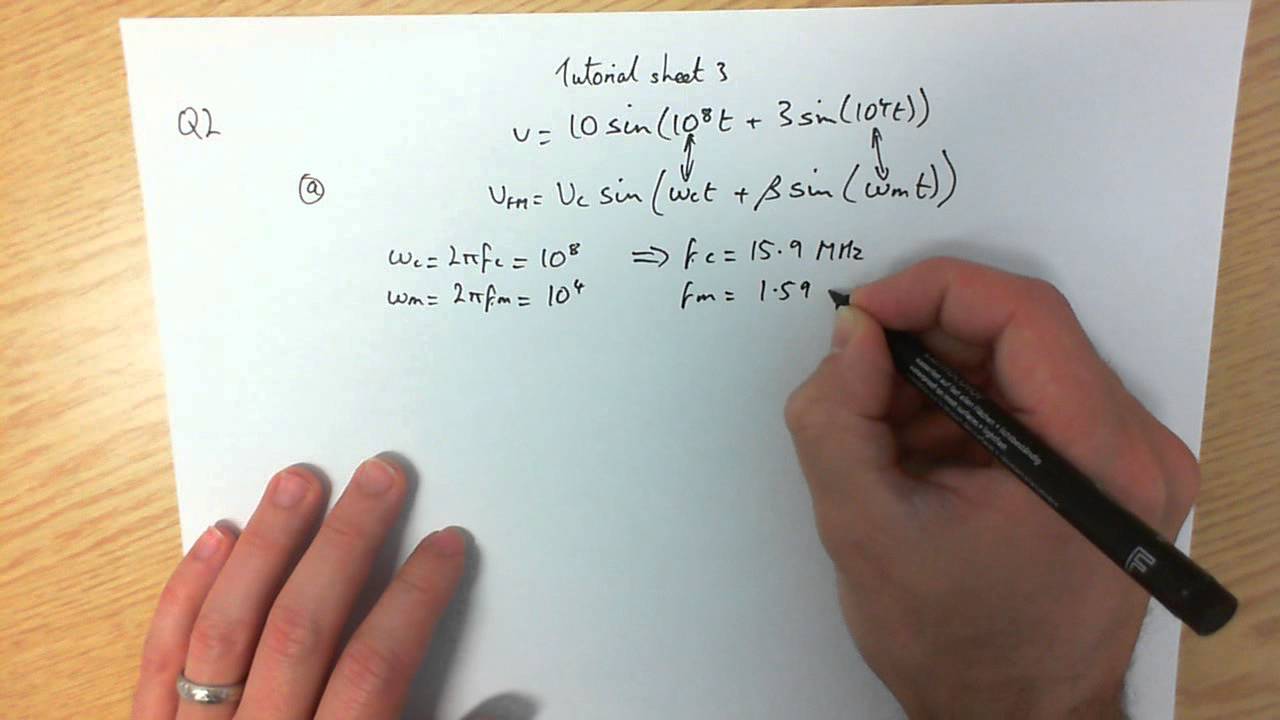 Tutorial sheet 3
Q2
v = 10 sin(10⁸t + 3 sin(10⁴t))
ⓐ
v_FM = V_c sin(ω_c t + β sin(ω_m t))
ω_c = 2πf_c = 10⁸ ⇒ f_c = 15.9 MHz
ω_m = 2πf_m = 10⁴ f_m = 1.59